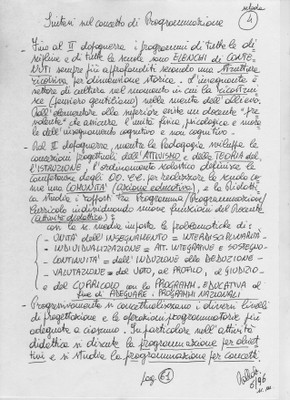 scheda
4
Sintesi sul concetto di Programmazione
- Fino al II dopoguerra i programmi di tutte le di
scipline e di tutte le scuole sono ELENCHI di CONTE
NUTI sempre più approfonditi secondo una struttura
ricorsiva per dimensione storica. L'insegnante è
settore di cultura nel momento in cui la ricostrui
sce (pensiero gentiliano) nella mente dell'allievo.
Dall'elementare alla superiore entra un docente "pre
valente" che assicura l'unità fisica, psicologica e mora
le dell'insegnamento cognitivo e non cognitivo.
- Dal II dopoguerra, mentre la Pedagogia sviluppa le
concezioni progettuali dell'ATTIVISMO e della TEORIA del
L'ISTRUZIONE, l'ordinamento scolastico definisce la
competenza degli OO.CC. per realizzare la scuola co
me una COMUNITÀ (azione educativa), e la Didatti
ca studia i rapporti tra Programma/Programmazione/
Curricolo individuando nuove funzioni del Docente
(azione didattica);
con la le medie imposta le problematiche di:
- UNITÀ dell'INSEGNAMENTO = INTERDISCIPLINARITÀ -
- INDIVIDUALIZZAZIONE = ATT. INTEGRATIVE e SOSTEGNO -
- CONTINUITÀ = dall'INDUZIONE alla DEDUZIONE -
- VALUTAZIONE = dal VOTO, al PROFILO, al GIUDIZIO -
- e del CURRICOLO con la PROGRAMM. EDUCATIVA al
fine di ADEGUARE i PROGRAMMI NAZIONALI -
- Progressivamente si concettualizzano i diversi livelli
di progettazione e le operazioni programmatorie più
adeguate a ciascuno. In particolare nell'attività
didattica si discute la programmazione per obiet
tivi e si studia la programmazione per concetti.
pag. E1
5/96